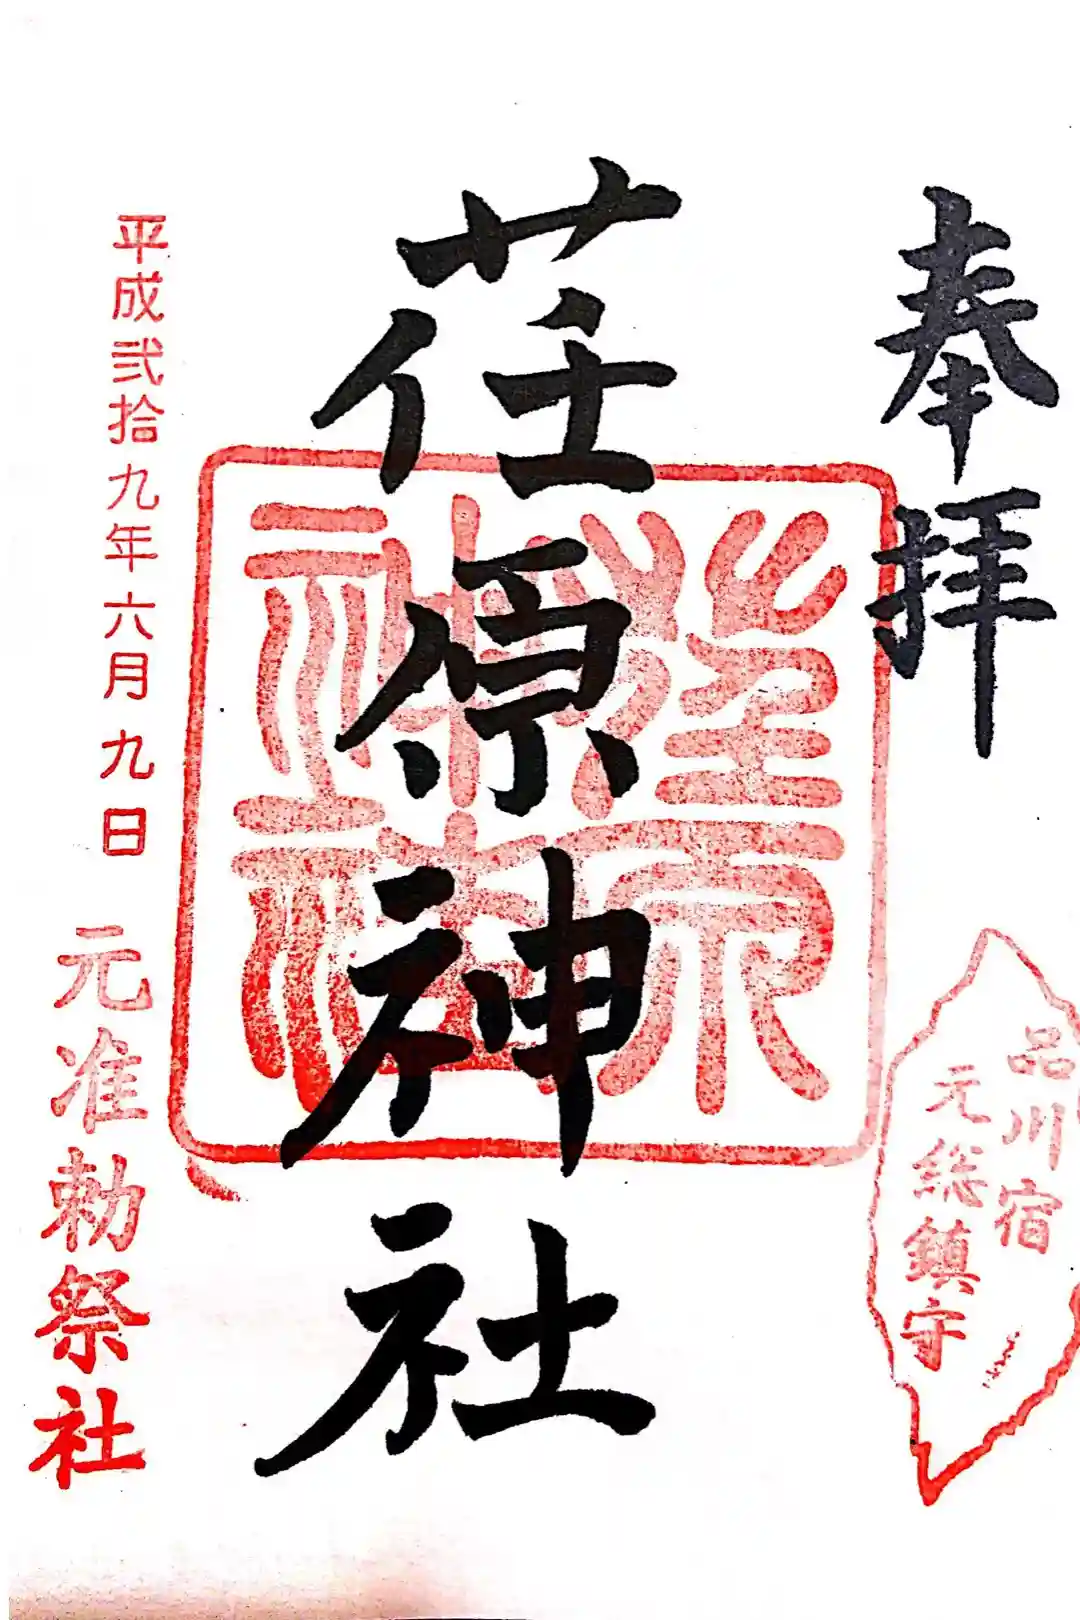 奉拝
品川宿
元総鎮守
荏原神社
荏原
神社
平成弐拾九年六月九日
元准勅祭社